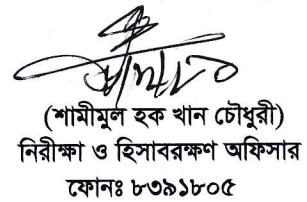 (শামীমুল হক খান চৌধুরী)
নিরীক্ষা ও হিসাবরক্ষণ অফিসার
ফোনঃ ৮৩৯১৮০৫